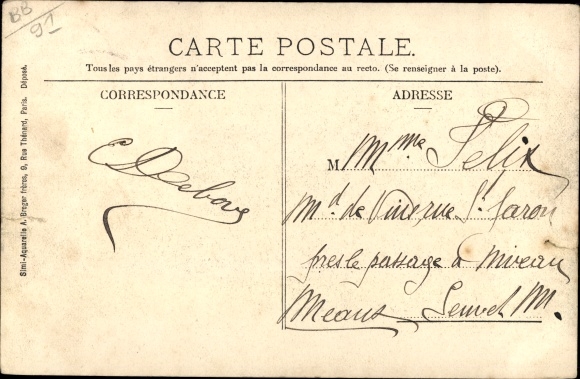 BB
91
CARTE POSTALE.
Tous les pays étrangers n'acceptent pas la correspondance au recto. (Se renseigner à la poste).
CORRESPONDANCE
ADRESSE
Simi-Aquarelle A. Breger frères, 9, Rue Thénard, Paris. Déposé.
C Debove
M Mme Felix
Md de Vin rue St Faron
près le passage à Niveau
Meaux